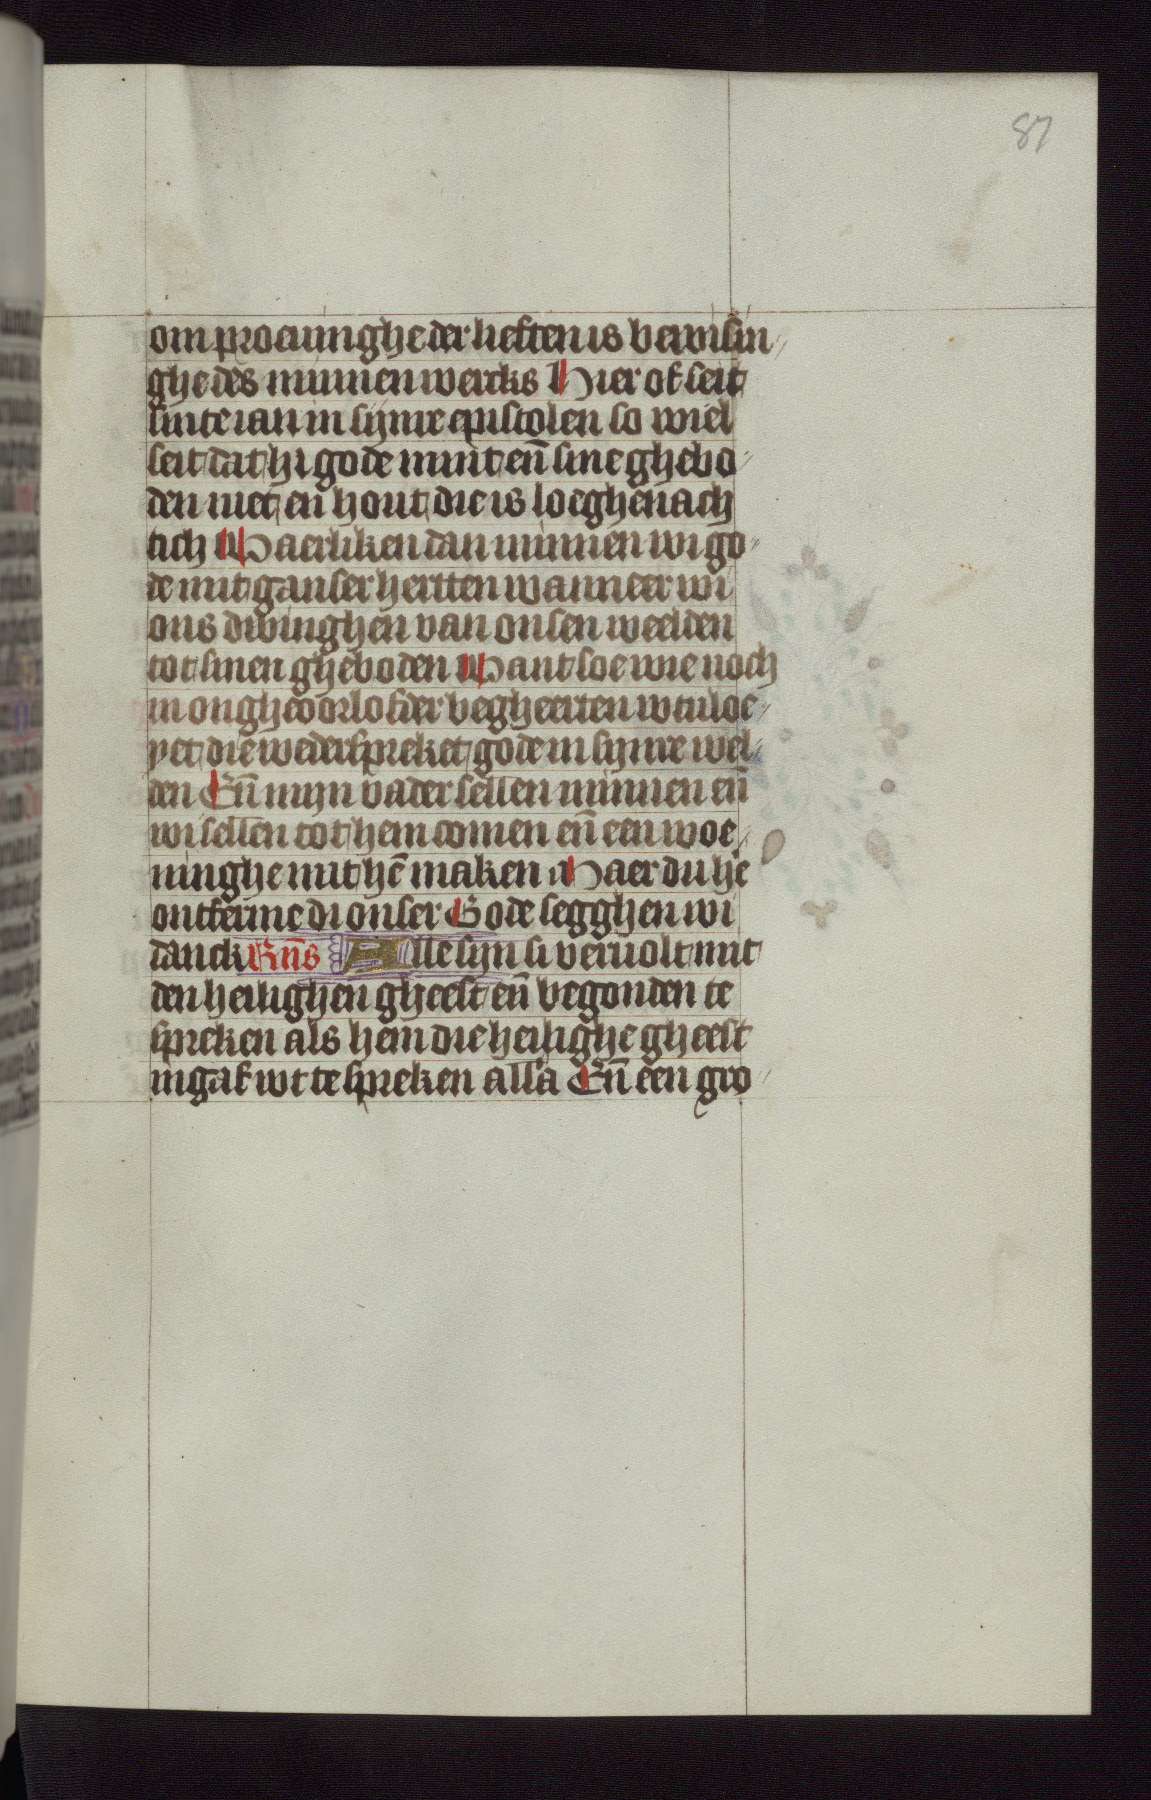 87
om proeuinghe der lieften is bewisin
ghe des minnen wercks Hier of seit
sinte ian in synre epistolen so wiel
seit dat hi gode mint en̄ sine ghebo
den niet en hout die is loeghenach
tich Waerliken dan minnen wi go
de mit ganser hertten wanneer wi
ons dwinghen van onsen weelden
tot sinen gheboden Want soe wie noch
in ongheoorlofder begheerten wtuloe
yet die wederspreket gode in synre wel
den En̄ myn vader sellen minnen en̄
wi sellen tot hem comen en̄ een woe
ninghe mit hē maken Maer du he
ontferme di onser Gode segghen wi
danck Rn̄s Alle syn si veruolt mit
den heilighen gheest en̄ begonden te
spreken als hem die heilighe gheest
ingaf wt te spreken all'a En̄ een gro